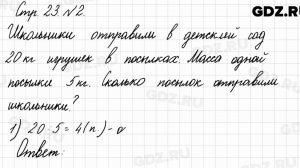 Стр. 23 №2. GDZ.RU
Школьники отправили в детский сад
20 кг игрушек в посылках. Масса одной
посылки 5 кг. Сколько посылок отправили
школьники?
1) 20 : 5 = 4 (п) - о
Ответ:
GDZ.RU